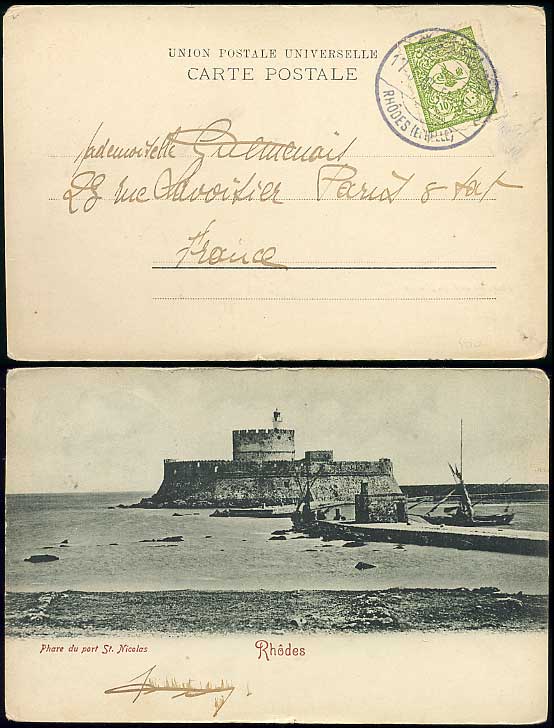 UNION POSTALE UNIVERSELLE
CARTE POSTALE
RHÔDES
10
Mademoiselle Guemenois
23 rue Lavoisier Paris 8
France
Phare du port St. Nicolas
Rhôdes